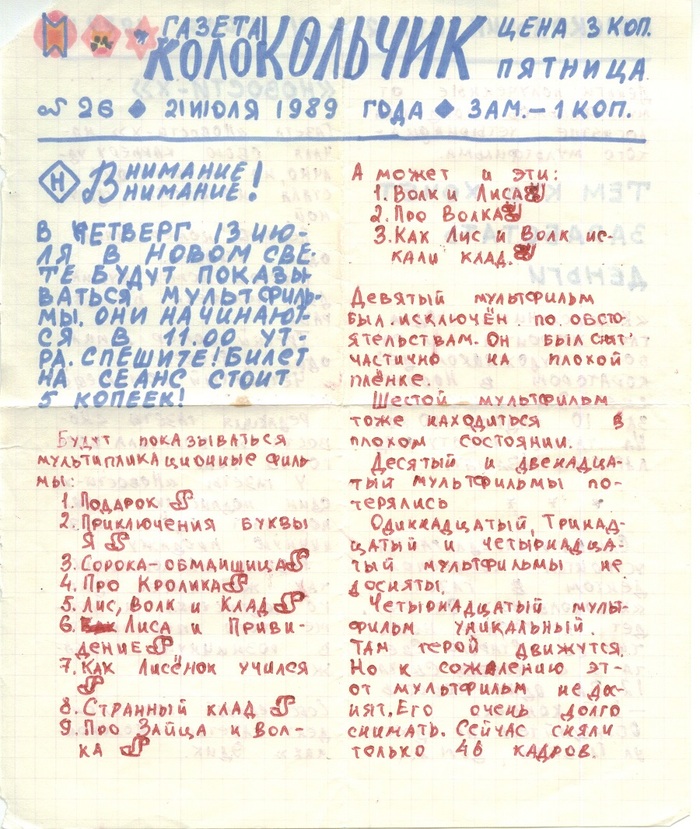 ГАЗЕТА
КОЛОКОЛЬЧИК
ЦЕНА 3 КОП.
ПЯТНИЦА
№ 26 ◆ 21 ИЮЛЯ 1989 ГОДА ◆ ЗАМ.–1 КОП.
Н
ВНИМАНИЕ!
ВНИМАНИЕ!
В ЧЕТВЕРГ 13 ИЮ-
ЛЯ В НОВОМ СВЕ-
ТЕ БУДУТ ПОКАЗЫ-
ВАТЬСЯ МУЛЬТФИЛЬ-
МЫ. ОНИ НАЧИНАЮТ-
СЯ В 11.00 УТ-
РА. СПЕШИТЕ! БИЛЕТ
НА СЕАНС СТОИТ
5 КОПЕЕК!
Будут показываться
мультипликационные филь
мы:
1. Подарок
2. Приключения буквы
Я
3. Сорока-обманщица
4. Про Кролика
5. Лис, Волк Клад
6. Лиса и Приви-
дение
7. Как Лисёнок учился
8. Странный клад
9. Про Зайца и Вол-
ка
А может и эти:
1. Волк и Лиса
2. Про Волка
3. Как Лис и Волк ис-
кали клад.
Девятый мультфильм
был исключён по обсто-
ятельствам. Он был снят
частично на плохой
плёнке.
Шестой мультфильм
тоже находиться в
плохом состоянии.
Десятый и двенадца-
тый мультфильмы по-
терялись
Одиннадцатый, Тринад-
цатый и четырнадца-
тый мультфильмы не
досняты.
Четырнадцатый муль-
фильм уникальный.
Там герой движутся.
Но к сожалению эт-
от мультфильм не дос-
нят. Его очень долго
снимать. Сейчас сняли
только 46 кадров.